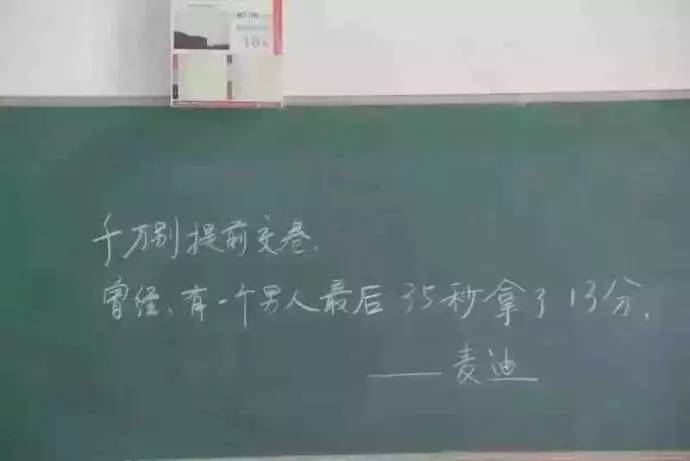 千万别提前交卷.
曾经、有一个男人最后 35秒拿了13分.
——麦迪